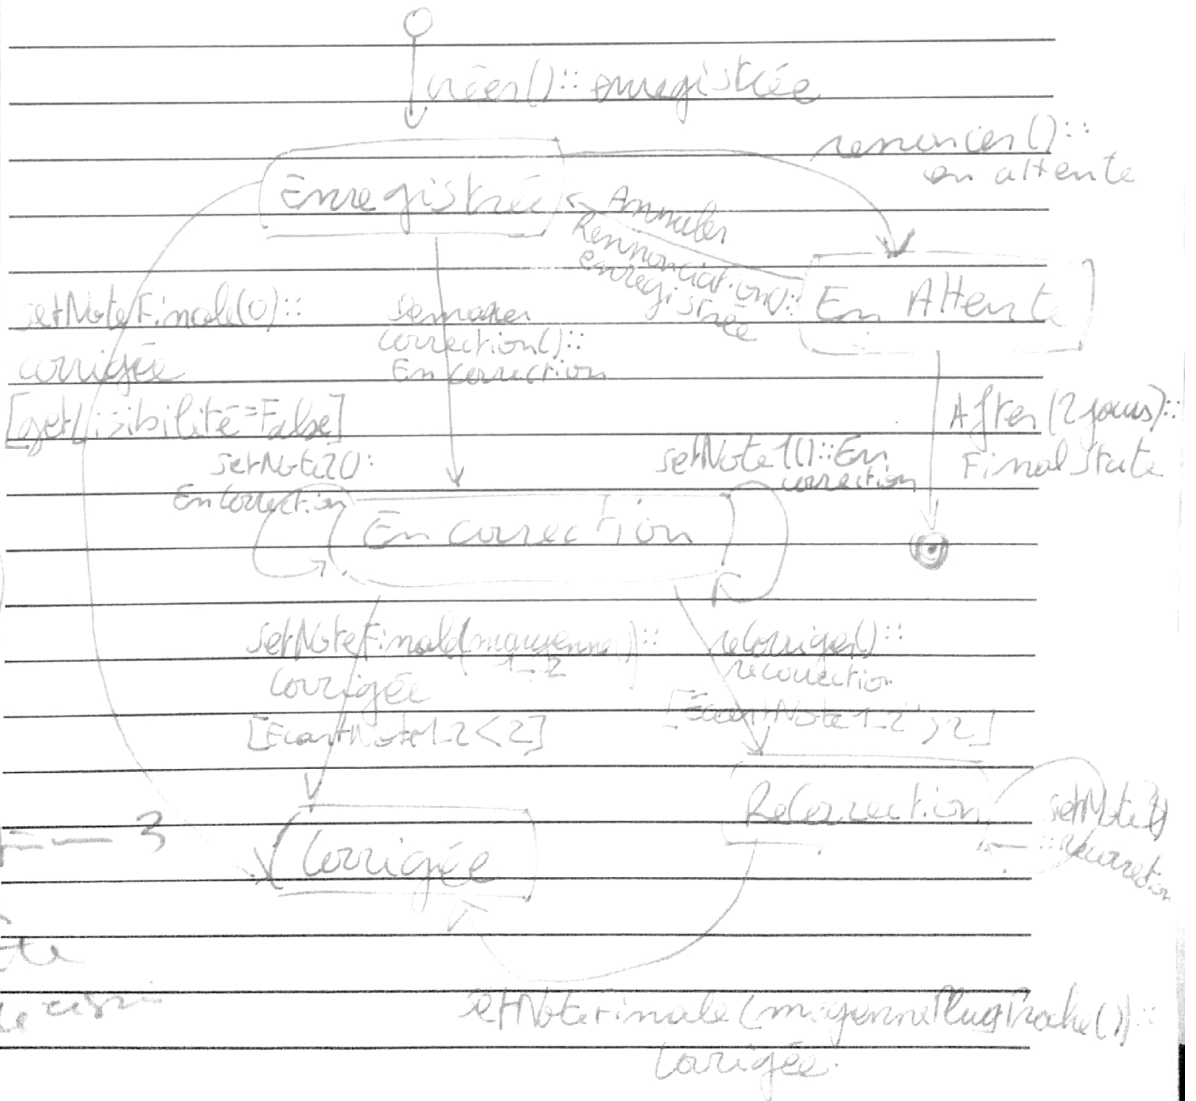 créer()::enregistrée
renoncer()::
en attente
Enregistrée
Annuler
Rennonciation()::
enregistrée
En Attente
setNoteFinale(0)::
corrigée
[getVisibilité=False]
Demarrer
correction()::
En correction
After(2 jours)::
Final State
setNote2():
En Correction
setNote1()::En
correction
En correction
setNoteFinale(moyenne())::
1_2
Corrigée
[EcartNote1_2<2]
reCorriger()::
recorrection
[EcartNote1_2>2]
ReCorrection
setNote3()
::recorrection
3
Corrigée
setNoteFinale(moyennePlusProche())::
Corrigée.